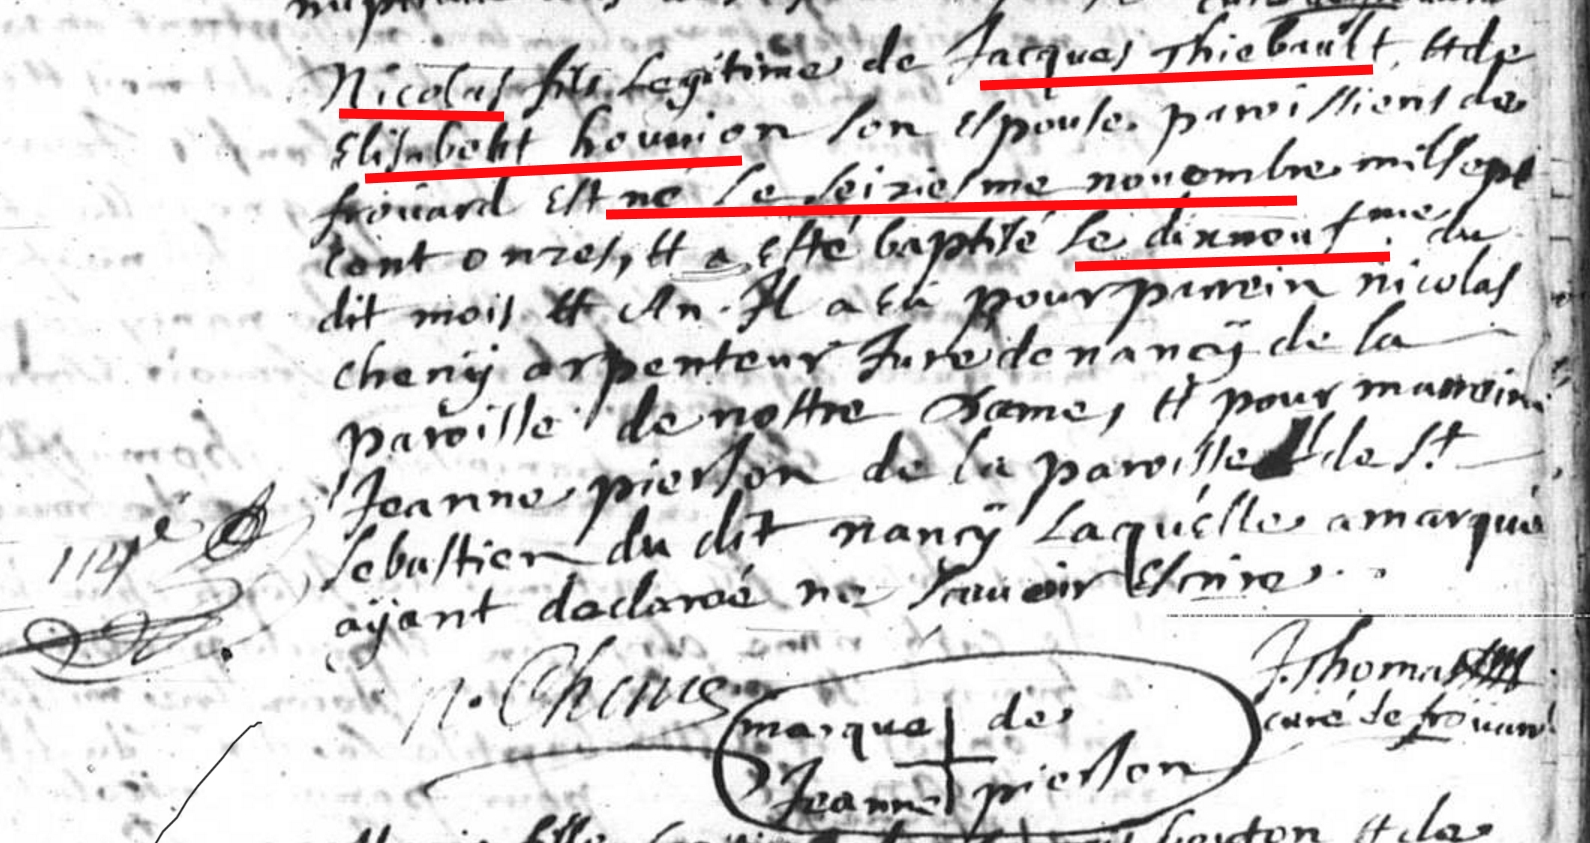 Nicolas fils legitime de Jacques Thiebault, et de
Elisabeht houuion son espouse. paroissiens de
froüard est né le seiziesme nouembre mil sept
cent onzes, et a esté baptisé le dixneuf me. du
dit mois et An. Il a eü pour parrein nicolas
cheny arpenteur Juré de nancÿ de la
paroisse de nostre Dame, et pour marreine
Jeanne pierson de la paroisse de St
sebastien du dit nancÿ Laquelle a marqué
aÿant declaré ne sauoir Escrire.
n. Cheny
J. Thomas
curé de froüard
marque de
Jeanne pierson
fille
et de la